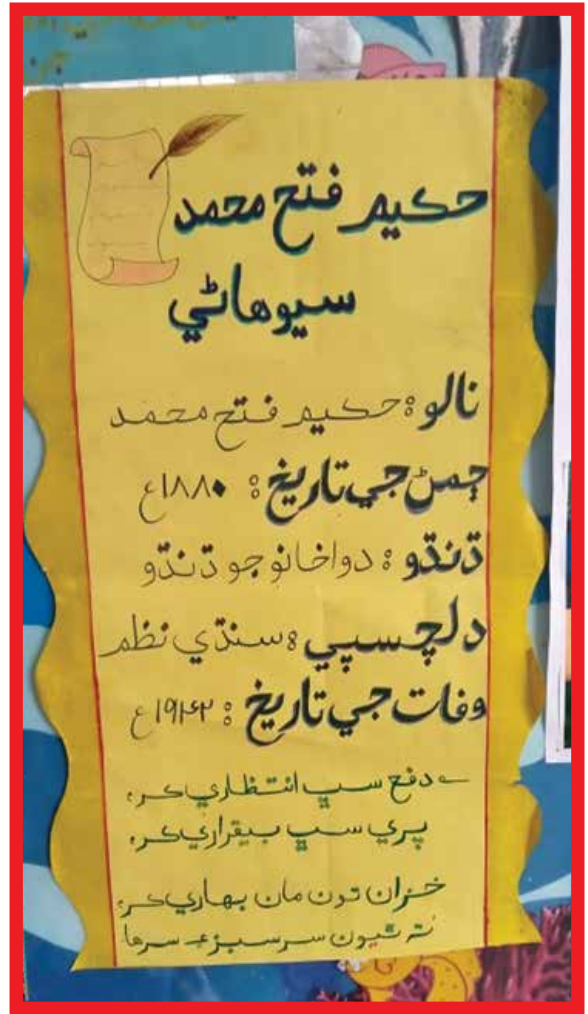 حڪيم فتح محمد
سيوهاڻي
نالو: حڪيم فتح محمد
ڄمڻ جي تاريخ: ۱۸۸۰ع
ڌنڌو: دواخانو جو ڌنڌو
دلچسپي: سنڌي نظم
وفات جي تاريخ: ۱۹۴۲ع
دفع سڀ انتظاري ڪر،
پري سڀ بيقراري ڪر،
خزان تون مان بهاري ڪر،
ته ٿيون سرسبز ۽ سرها